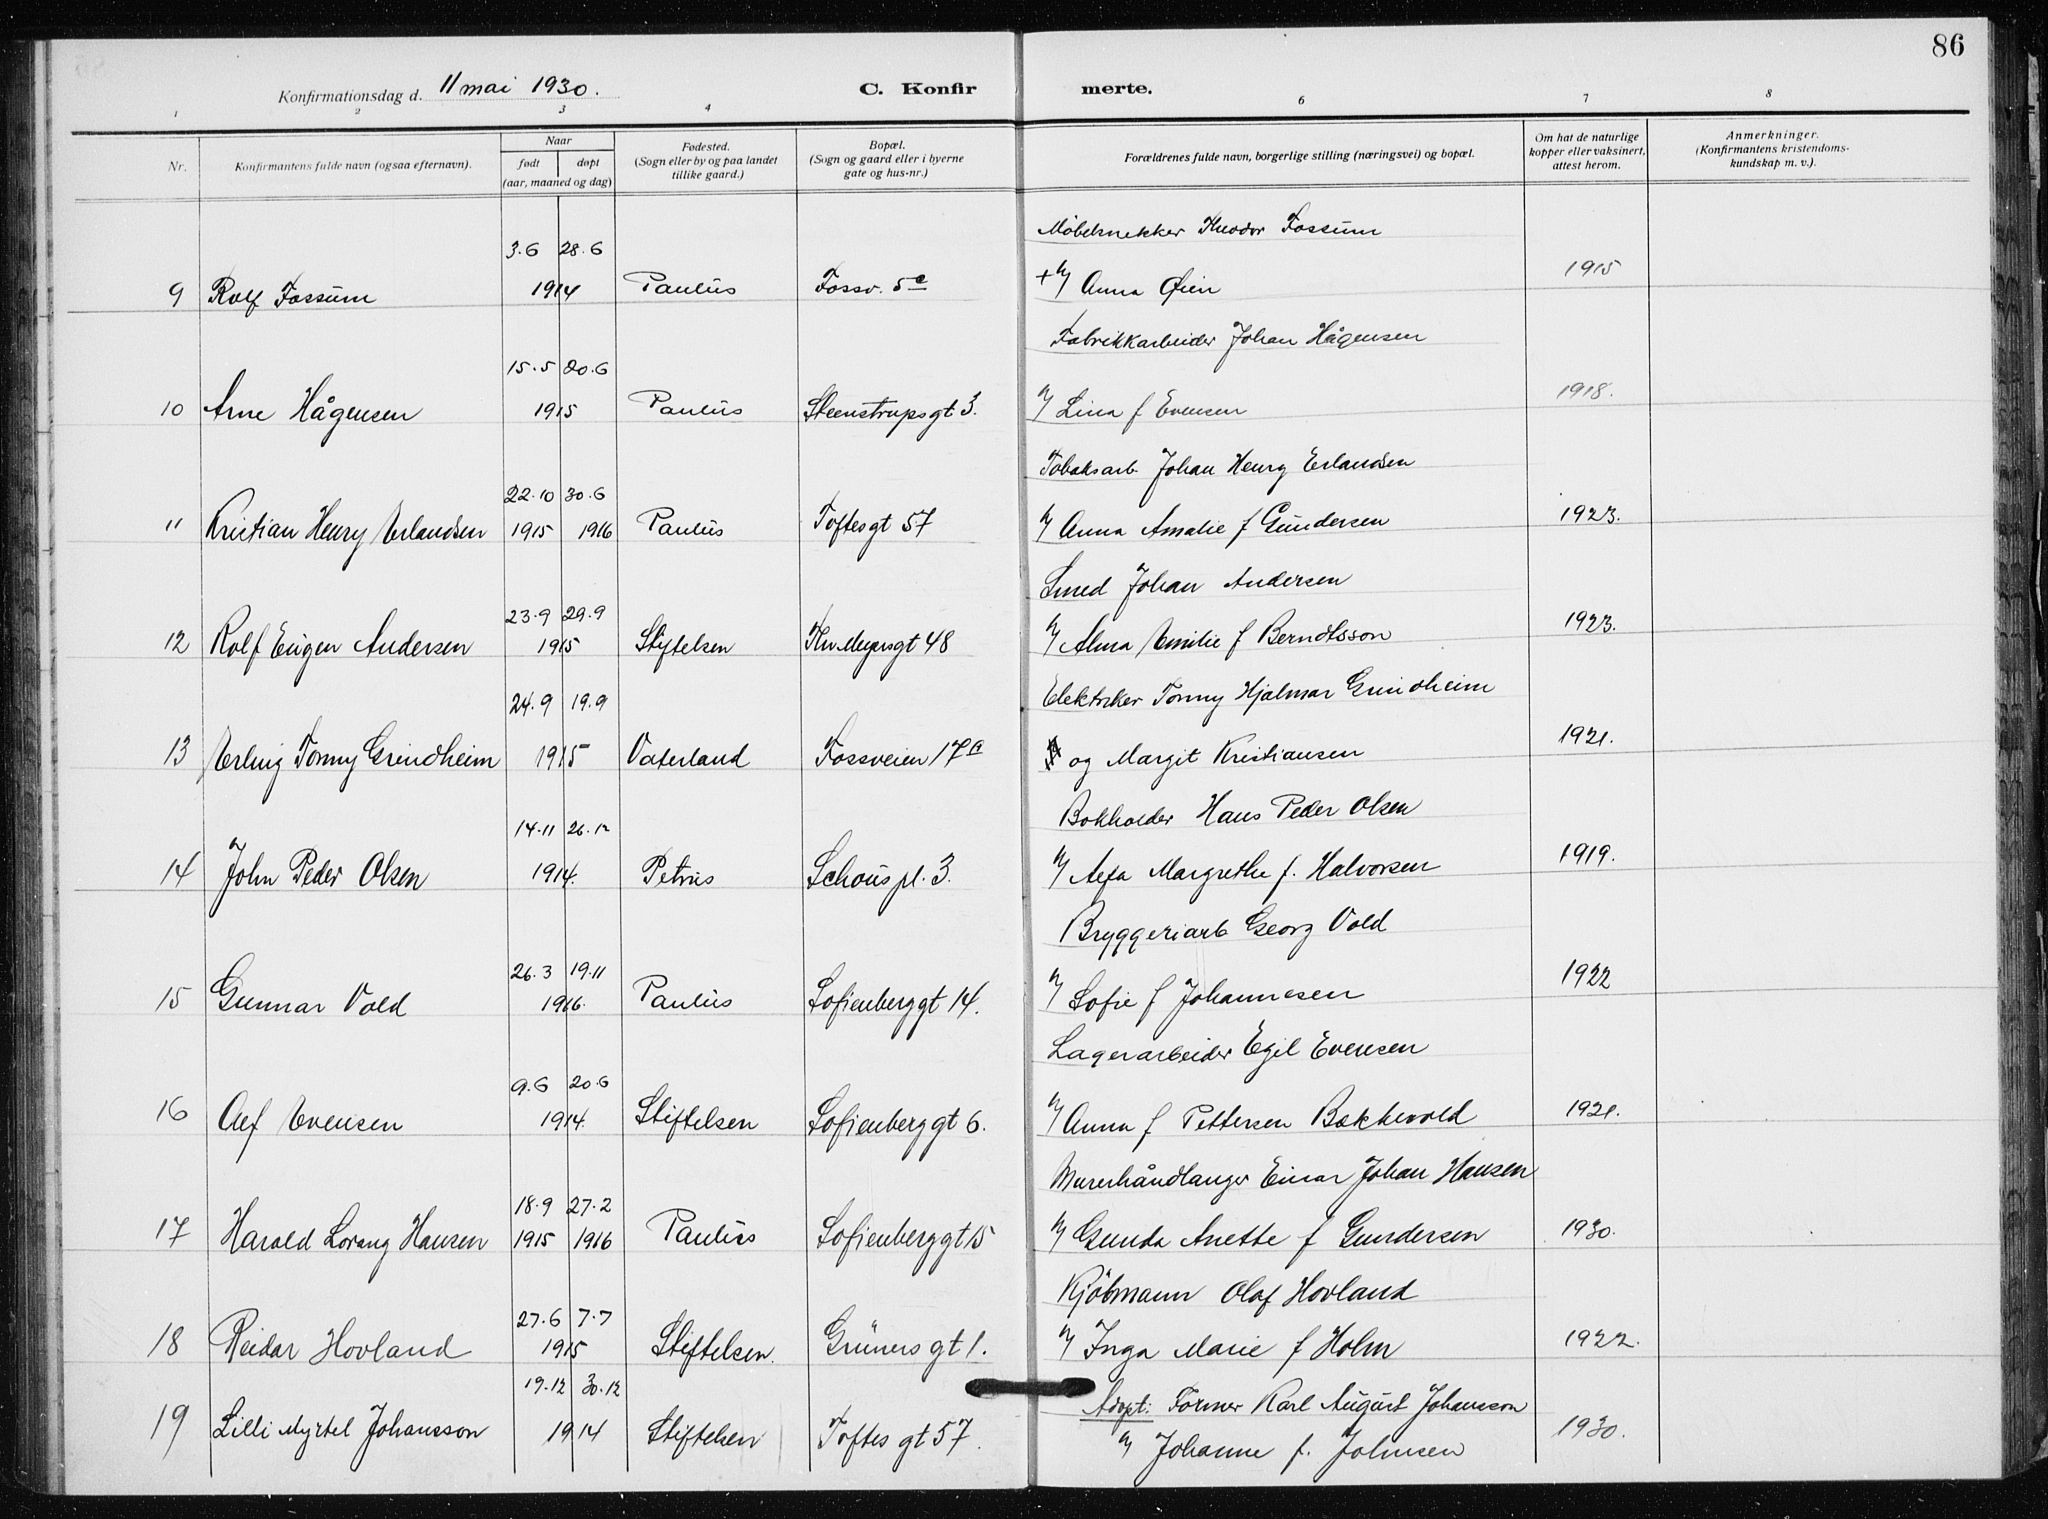 86
Konfirmationsdag d. 11 mai 1930. C. Konfirmerte.
1 2 3 4 6 7 8
Nr. Konfirmantens fulde navn (ogsaa efternavn). Naar født døpt (aar, maaned og dag) Fødested. (Sogn eller by og paa landet tillike gaard.) Bopæl. (Sogn og gaard eller i byerne gate og hus-nr.) Forældrenes fulde navn, borgerlige stilling (næringsvei) og bopæl. Om hat de naturlige kopper eller vaksinert, attest herom. Anmerkninger. (Konfirmantens kristendomskundskap m. v.).
3.6 28.6 Møbelsnekker Theodor Fossum
9 Rolf Fossum 1914 Paulus Fossv. 5c + Anna Øien 1915
Fabrikkarbeider Johan Hågensen
15.5 20.6
10 Arne Hågensen 1915 Paulus Steenstrupsgt 3. Lina f Evensen 1918.
Tobaksarb. Johan Henry Erlandsen
22.10 30.6
11 Kristian Henry Erlandsen 1915 1916 Paulus Toftesgt 57 Anna Amalie f Gundersen 1923.
Smed Johan Andersen
23.9 29.9
12 Rolf Eugen Andersen 1915 Stiftelsen Thv Meyersgt 48 Alma Emilie f Berndtsson 1923.
Elektriker Tonny Hjalmar Grindheim
24.9 19.9
13 Erling Tonny Grindheim 1915 Vaterland Fossveien 17a og Margit Kristiansen 1921.
Bokholder Hans Peder Olsen
14.11 26.12
14 John Peder Olsen 1914. Petrus Schous pl. 3. Margrethe f. Halvorsen 1919.
Bryggeriarb Georg Vold
26.3 19.11
15 Gunnar Vold 1916. Paulus Sofienberggt 14. Sofie f Johannesen 1922
Lagerarbeider Egil Evensen
9.6 20.6
16 Alf Evensen 1914. Stiftelsen Sofienberggt 6. Anna f Pettersen Bækkevold 1921.
Murerhåndlanger Einar Johan Hansen
18.9 27.2
17 Harald Lorang Hansen 1915 1916 Paulus Sofienberggt 15 Gunda Anette f Gundersen 1930.
Kjøbmann Olaf Hovland
27.6 7.7
18 Reidar Hovland 1915 Stiftelsen. Grüners gt 1. Inga Marie f Holm 1922.
19.12 30.12 Adopt: Former Karl August Johansson
19 Lilli Myrtel Johansson 1914 Stiftelsen Toftes gt 57. Johanne f. Johnsen 1930.